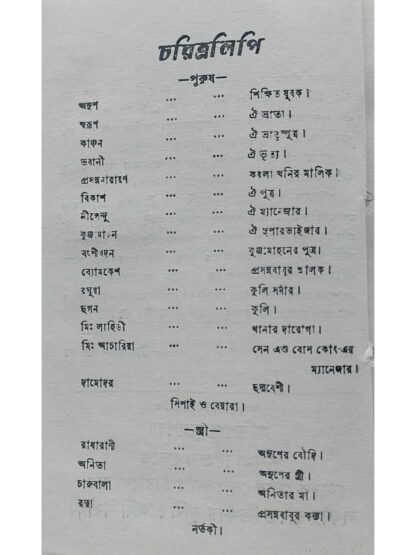 চরিত্রলিপি
—পুরুষ—
অরূপ ... ... শিক্ষিত যুবক।
স্বরূপ ... ... ঐ ভ্রাতা।
কাঞ্চন ... ... ঐ ভ্রাতুষ্পুত্র।
ভবানী ... ... ঐ ভৃত্য।
প্রসন্ননারায়ণ ... ... কয়লা খনির মালিক।
বিকাশ ... ... ঐ পুত্র।
নীলেন্দু ... ... ঐ ম্যানেজার।
কুঞ্জমোহন ... ... ঐ সুপারভাইজার।
বংশীবদন ... ... কুঞ্জমোহনের পুত্র।
ব্যোমকেশ ... ... প্রসন্নবাবুর শ্যালক।
রঘুয়া ... ... কুলি সর্দার।
ছগন ... ... কুলি।
মিঃ লাহিড়ী ... ... থানার দারোগা।
মিঃ আচারিয়া ... ... সেন এণ্ড বোস কোং-এর
ম্যানেজার।
দামোদর ... ... ছদ্মবেশী।
সিপাই ও বেয়ারা।
—স্ত্রী—
রাধারাণী ... ... অরূপের বৌদি।
অনিতা ... ... অরূপের স্ত্রী।
চারুবালা ... ... অনিতার মা।
রত্না ... ... প্রসন্নবাবুর কন্যা।
নর্তকী।